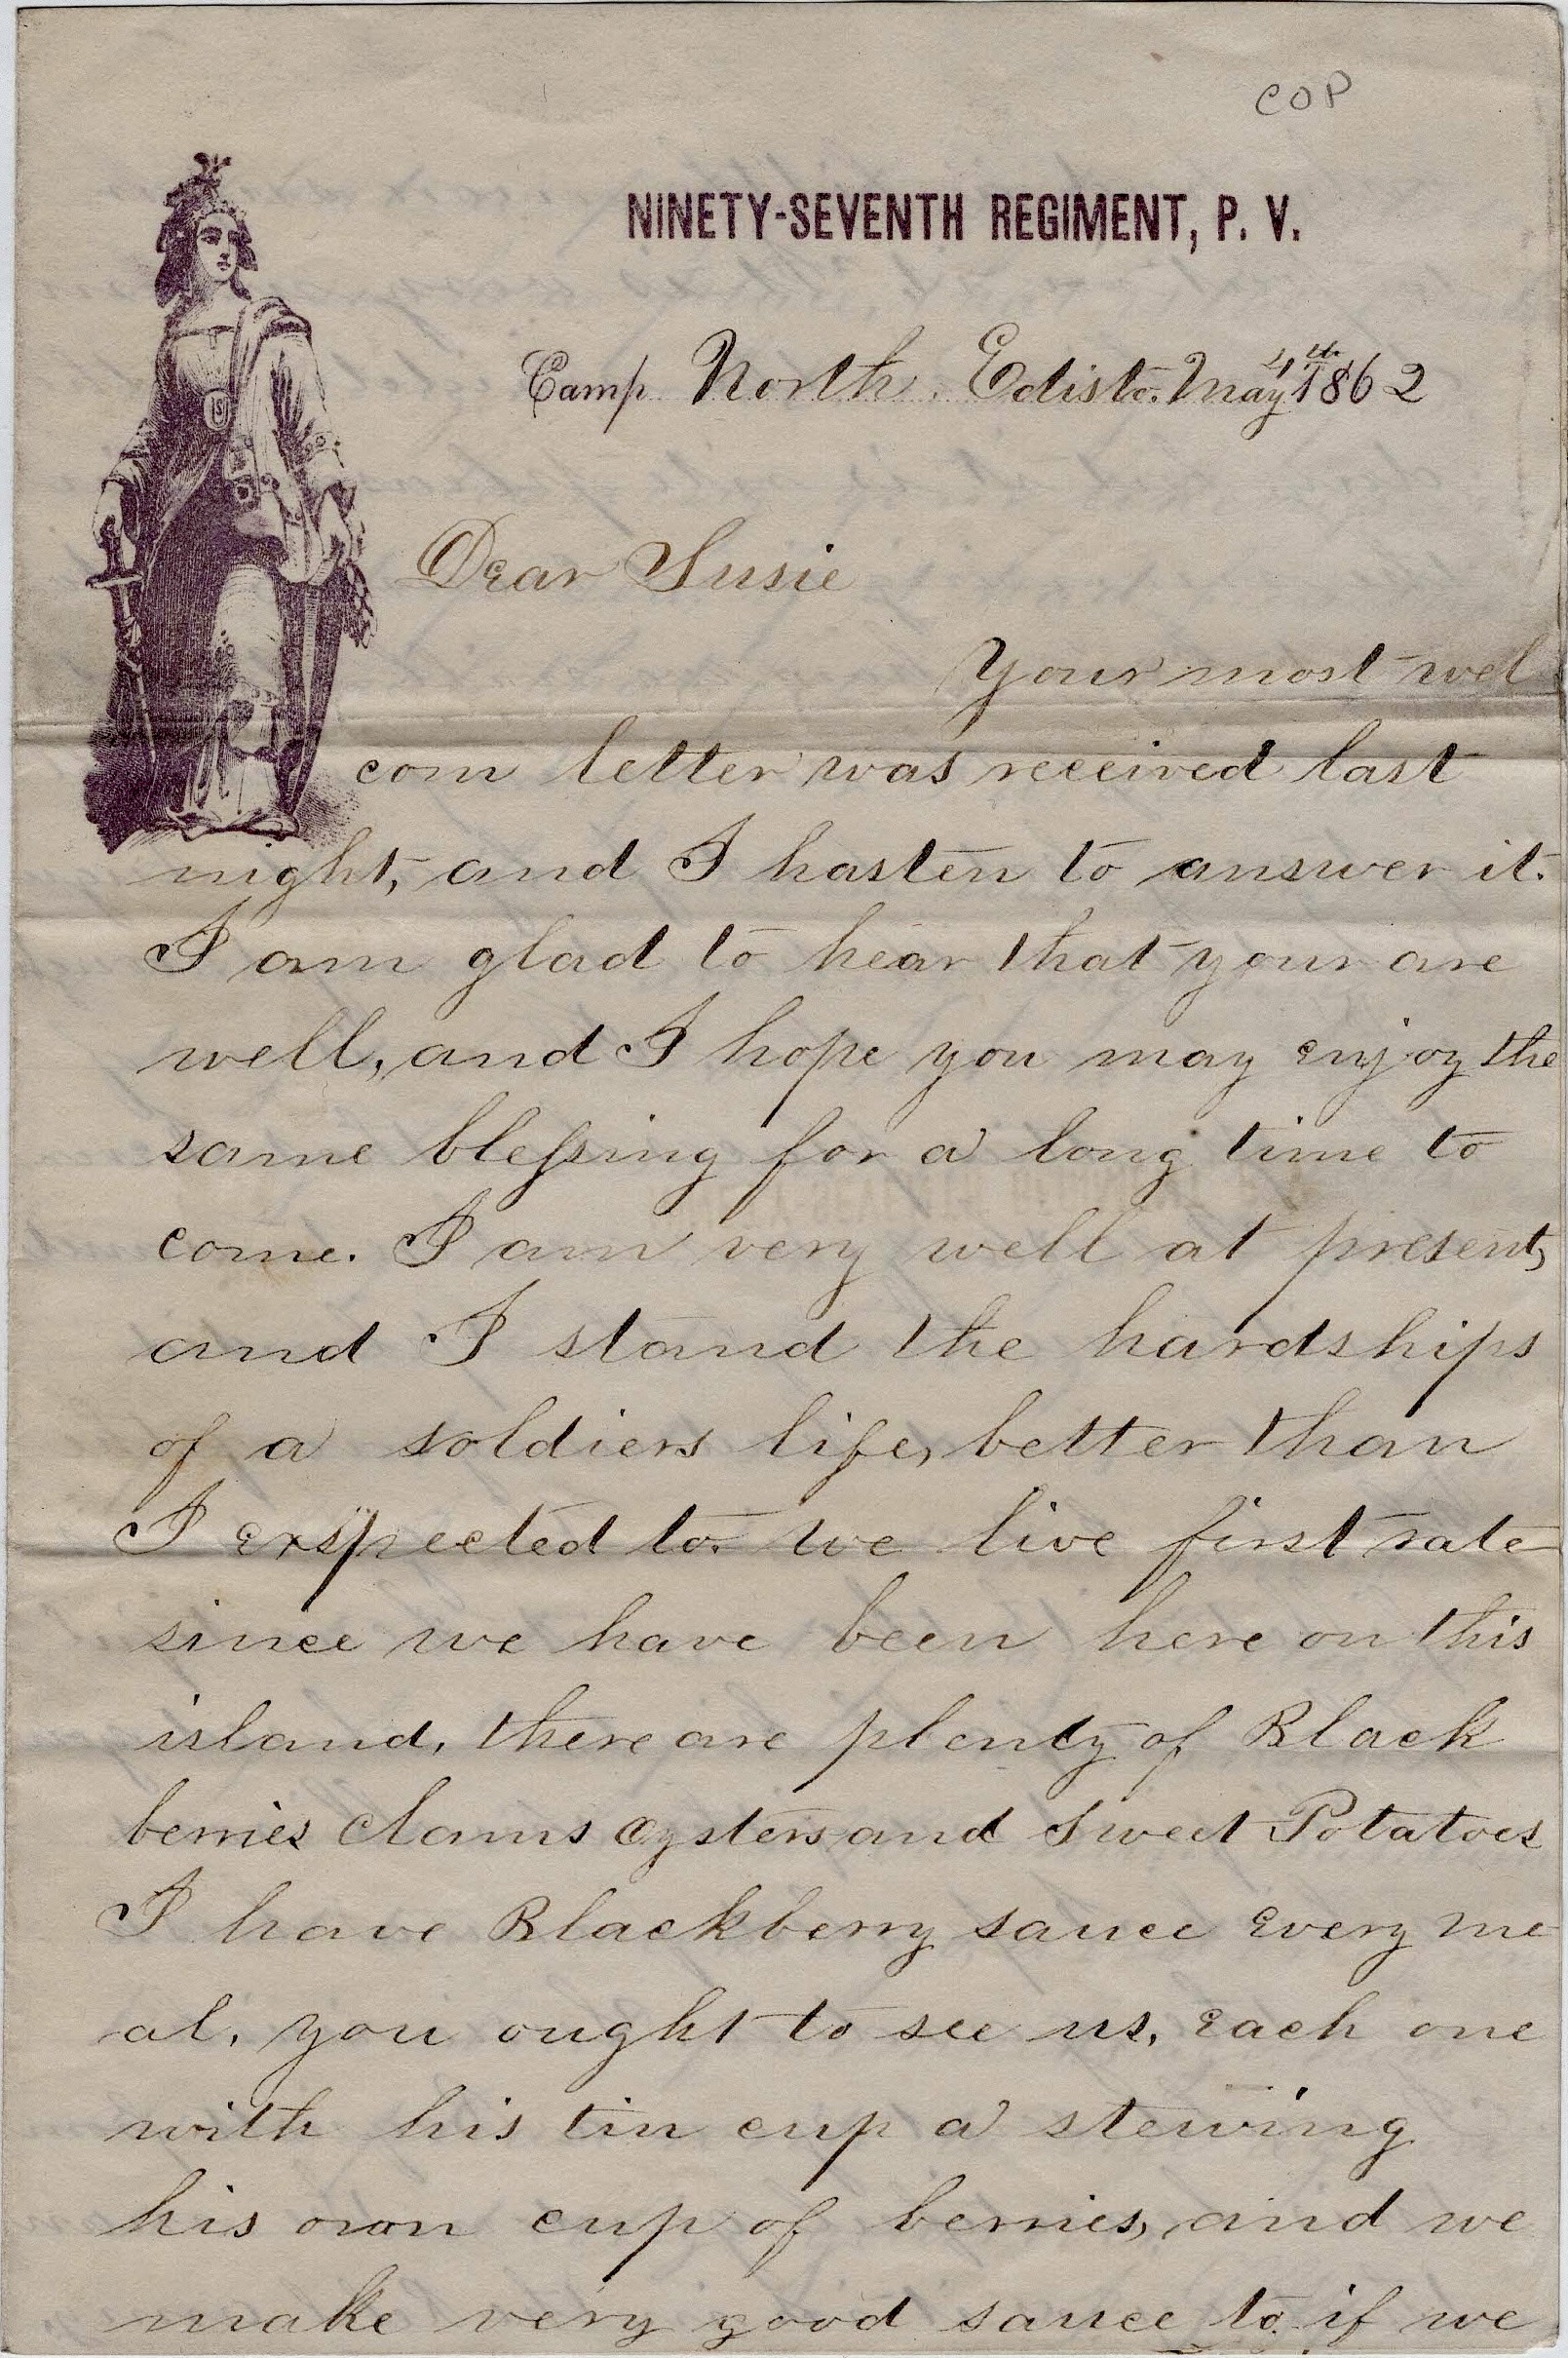 COP
NINETY-SEVENTH REGIMENT, P. V.
Camp North Edisto. May 4th 1862
US
Dear Susie
Your most wel
com letter was received last
night, and I hasten to answer it.
I am glad to hear that your are
well, and I hope you may enjoy the
same blessing for a long time to
come. I am very well at present,
and I stand the hardships
of a soldiers life, better than
I exspected to. we live first rate
since we have been here on this
island, there are plenty of Black
berries clams oysters and Sweet Potatoes
I have Blackberry sauce every me
al, you ought to see us, each one
with his tin cup a stewing
his own cup of berries, and we
make very good sauce to if we